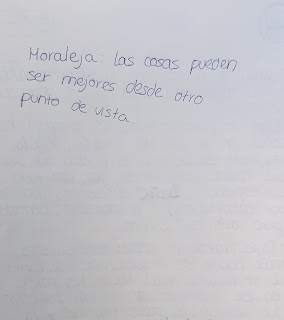 Moraleja: las cosas pueden
ser mejores desde otro
punto de vista.